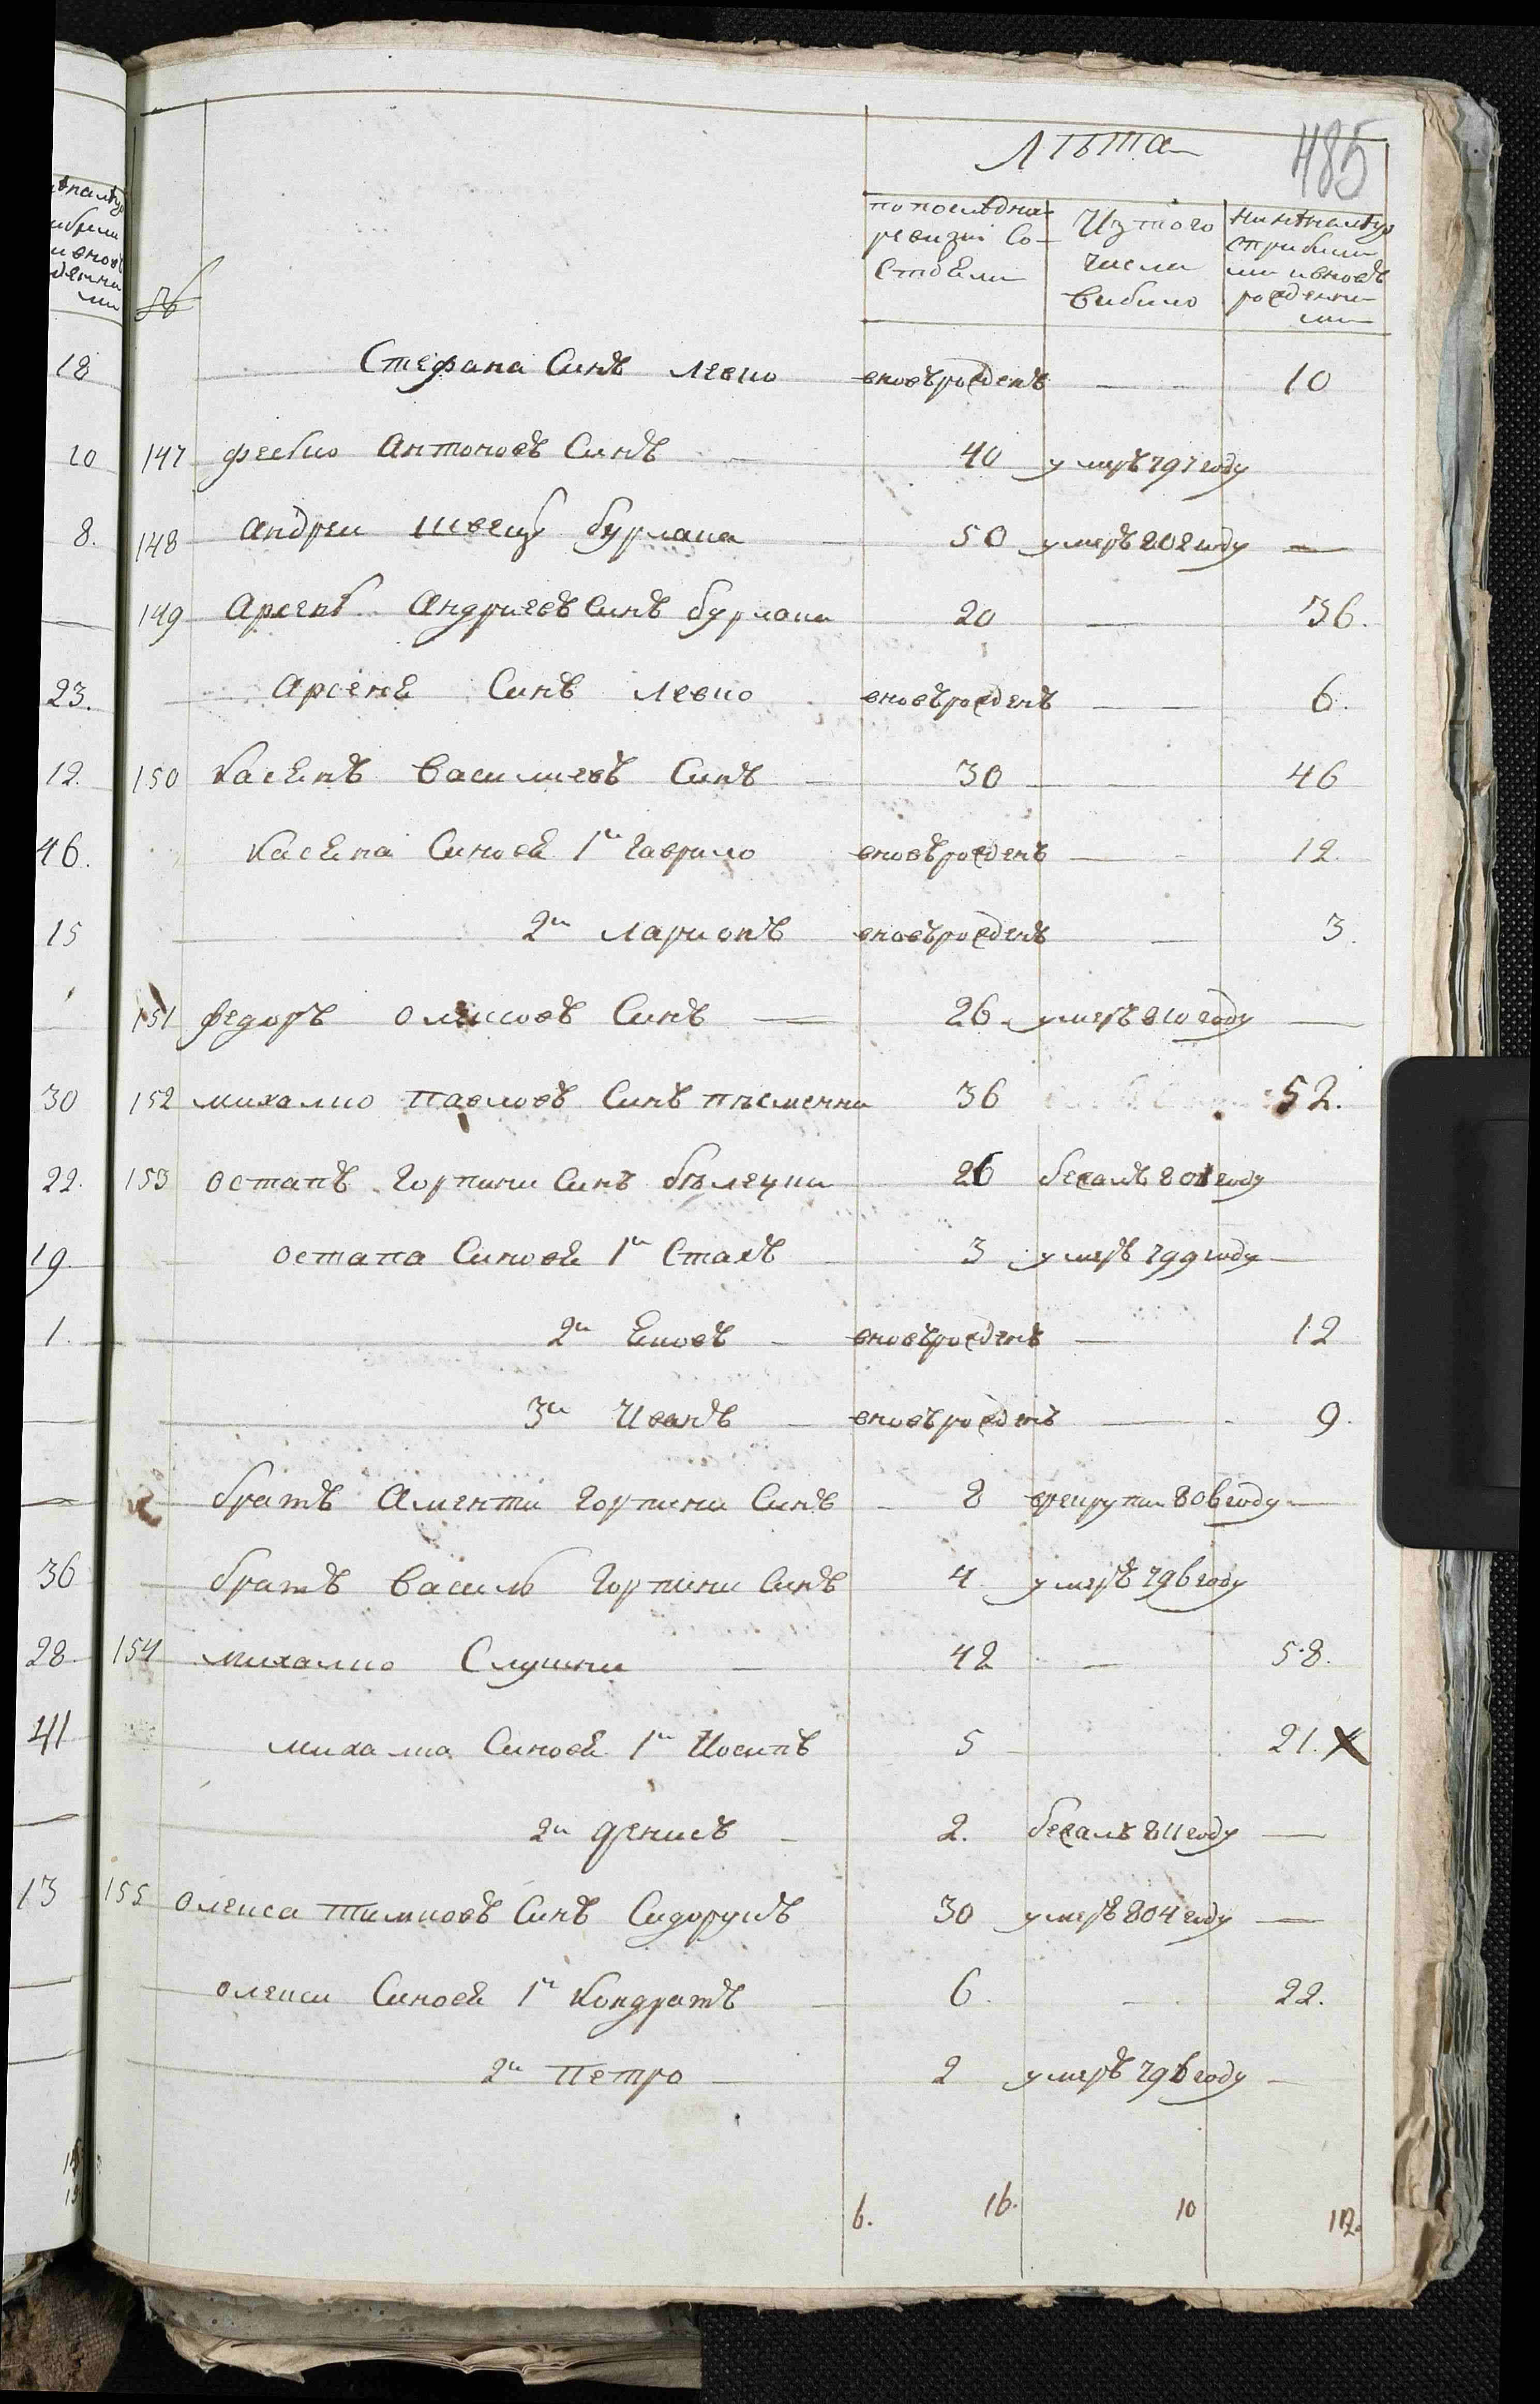 485
Лѣта
по последнеи ревизіи состоели
Из того числа вибило
Нине налицо сприбилими ивновь рожденними
№
Стефана Синъ левко вновъ рожденъ — 10
147 федко Антоновъ Синъ 40 умеръ 797 году
148 Андреи швецъ бурлака 50 умеръ 802 году —
149 Арсенъ Андриевъ Синъ бурлака 20 — 36.
Арсене Синъ левко вновъ рожденъ — 6.
150 Касенъ Василиевъ Синъ 30 — 46
Касена Синове 1й Гаврило вновъ рожденъ — 12.
2й ларионъ вновъ рожденъ — 3.
151 федоръ олексовъ Синъ — 26 умеръ 810 году —
152 михалко павловъ Синъ 36 52.
153 остапъ горпини Синъ 26 бежалъ 801 году
остапа Синове 1й Стахъ 3 умеръ 799 году —
2й Яковъ вновъ рожденъ — 12
3й Иванъ вновъ рожденъ — 9.
братъ Аменти горпини Синъ 8 врекрути 806 году —
братъ Василь горпини Синъ 4 умеръ 796 году
154 михалко Слушни 42 — 58.
михалка Синове 1й Иосипъ 5 21. х
2й Денисъ 2. бежалъ 811 году —
155 олекса тимковъ Синъ Сидорукъ 30 умеръ 804 году —
олекси Синове 1й Кондратъ 6. — 22.
2й Петро 2 умеръ 796 году —
6. 16. 10 12.
18
10
8.
—
23.
12.
46.
15
30
22.
19.
1.
—
—
36
28
41
—
13
—
—